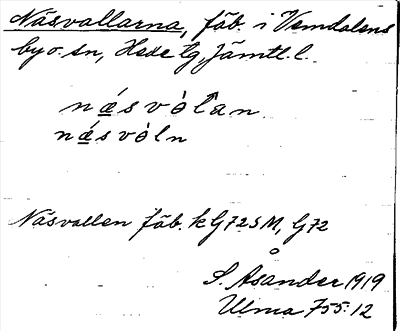 Näsvallarna, fäb. i Vemdalens
by o. sn, Hede tg, Jämtl. l.
næ´svòlan
næ´svòln
Näsvallen fäb. k G72SM, G72
S. Åsander 1919
Ulma 755:12